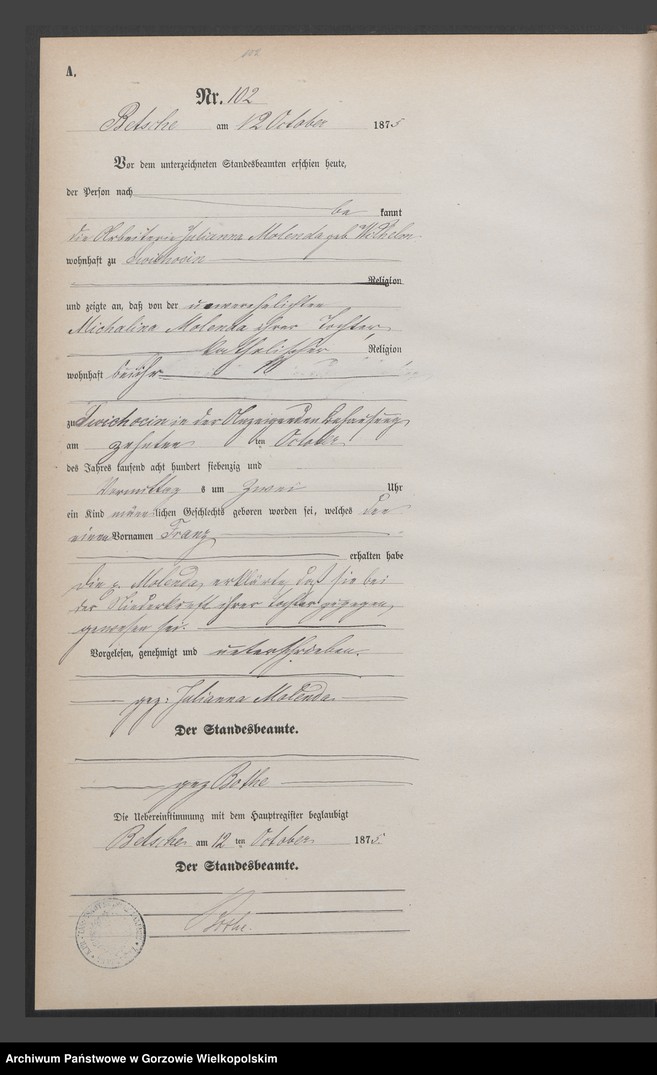 102
A.
Nr. 102
Betsche am 12 October 1875
Vor dem unterzeichneten Standesbeamten erschien heute,
der Person nach
be kannt
die Arbeiterin Julianna Molenda geb.
wohnhaft zu
Religion
und zeigte an, daß von der unverehelichten
Michalina Molenda ihrer Tochter,
katholischer Religion
wohnhaft bei ihr
zu in der Anzeigenden Behausung
am zehnten ten October
des Jahres tausend acht hundert siebenzig und
Vormittag s um zwei Uhr
ein Kind männlichen Geschlechts geboren worden sei, welches den
einen Vornamen Franz
erhalten habe
Die p. Molenda, erklärte, daß sie bei
der Niederkunft ihrer Tochter zugegen
gewesen sei.
Vorgelesen, genehmigt und unterschrieben.
gez: Julianna Molenda
Der Standesbeamte.
gez Bothe
Die Uebereinstimmung mit dem Hauptregister beglaubigt
Betsche am 12 ten October 1875.
Der Standesbeamte.
Bothe.
Archiwum Państwowe w Gorzowie Wielkopolskim